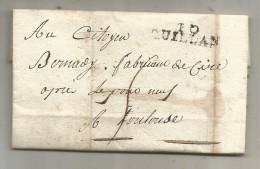 10
QUILLAN
Au Citoyen
Bernady. fabricant de Cire
après le pont neuf
A Toulouse